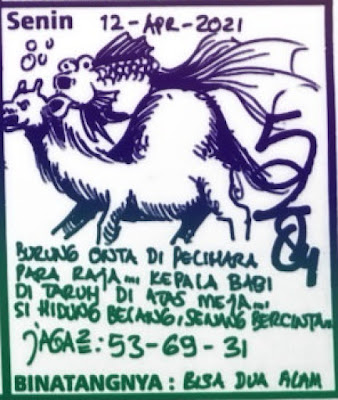 Senin 12-APR-2021
BURUNG ONTA DI PELIHARA
PARA RAJA... KEPALA BABI
DI TARUH DI ATAS MEJA...
SI HIDUNG BELANG, SENANG BERCINTA...
JAGA2 : 53-69-31
BINATANGNYA : BISA DUA ALAM